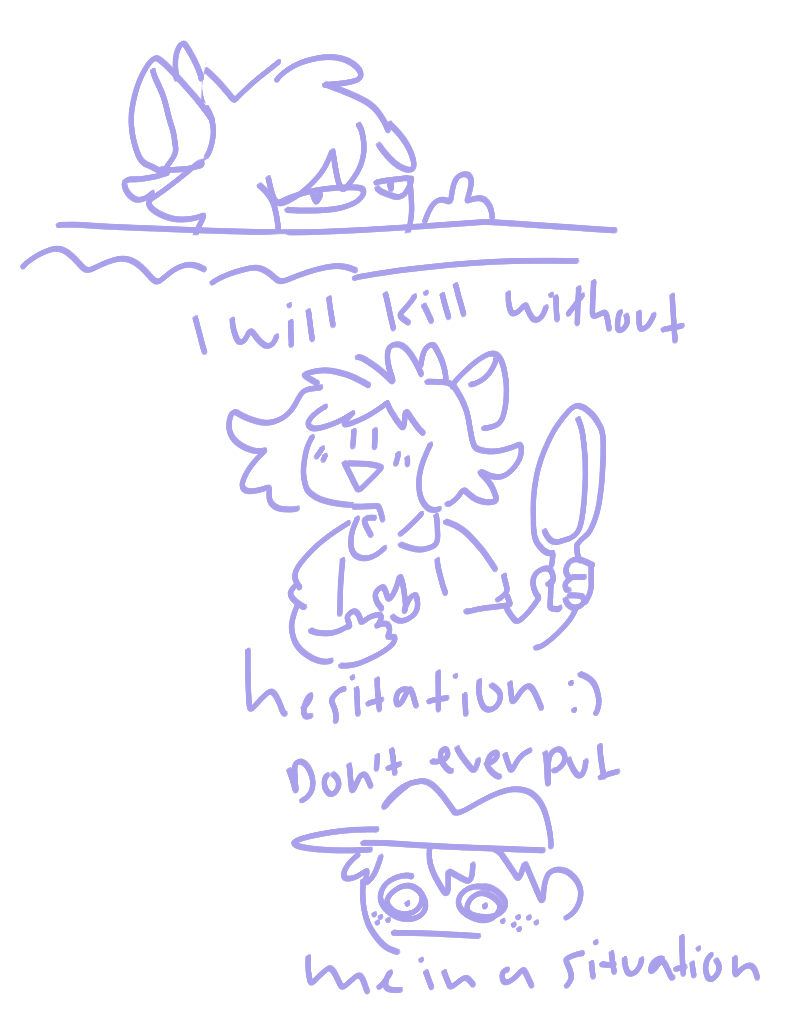 I will kill without
hesitation :)
Don't ever put
me in a situation